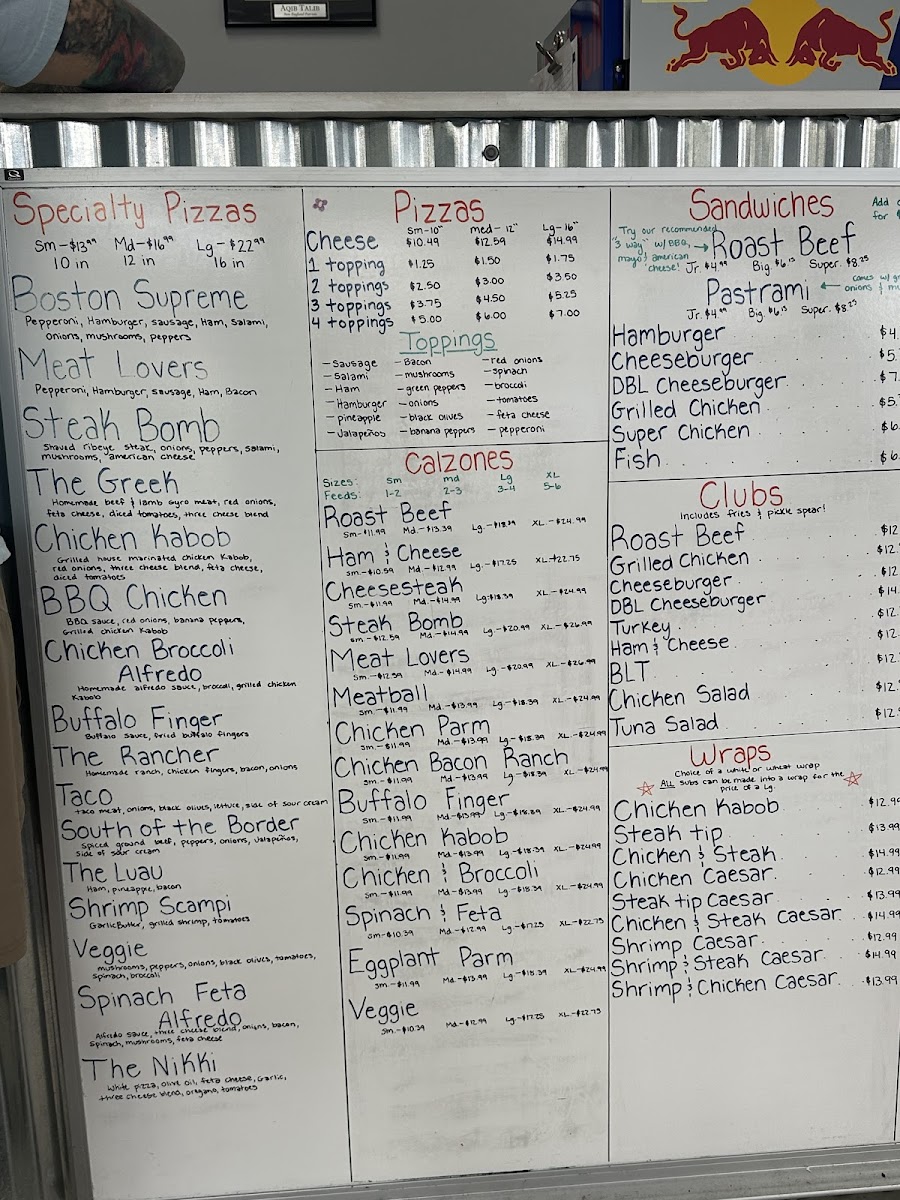 AQIB TALIB
Specialty Pizzas
Sm-$13.99 Md-$16.99 Lg-$22.99
10 in 12 in 16 in
Boston Supreme
Pepperoni, Hamburger, sausage, Ham, Salami,
Onions, mushrooms, peppers
Meat Lovers
Pepperoni, Hamburger, sausage, Ham, Bacon
Steak Bomb
Shaved ribeye steak, onions, peppers, salami,
mushrooms, american cheese
The Greek
Homemade beef & lamb gyro meat, red onions,
feta cheese, diced tomatoes, three cheese blend
Chicken Kabob
Grilled house marinated chicken Kabob,
red onions, three cheese blend, feta cheese,
diced tomatoes
BBQ Chicken
BBQ sauce, red onions, banana peppers,
Grilled chicken Kabob
Chicken Broccoli
Alfredo
Homemade alfredo sauce, broccoli, grilled chicken
Kabob
Buffalo Finger
Buffalo sauce, fried buffalo fingers
The Rancher
Homemade ranch, chicken fingers, bacon, onions
Taco
taco meat, onions, black olives, lettuce, side of sour cream
South of the Border
Spiced ground beef, peppers, onions, Jalapeños,
side of sour cream
The Luau
Ham, pineapple, bacon
Shrimp Scampi
Garlic Butter, grilled shrimp, tomatoes
Veggie
mushrooms, peppers, onions, black olives, tomatoes,
spinach, broccoli
Spinach Feta
Alfredo
Alfredo sauce, three cheese blend, onions, bacon,
Spinach, mushrooms, feta cheese
The Nikki
White pizza, olive oil, feta cheese, Garlic,
three cheese blend, oregano, tomatoes
Pizzas
Sm-10" med-12" Lg-16"
Cheese $10.49 $12.59 $14.99
1 topping $1.25 $1.50 $1.75
2 toppings $2.50 $3.00 $3.50
3 toppings $3.75 $4.50 $5.25
4 toppings $5.00 $6.00 $7.00
Toppings
- Sausage - Bacon - red onions
- Salami - mushrooms - spinach
- Ham - green peppers - broccoli
- Hamburger - onions - tomatoes
- pineapple - black olives - feta cheese
- Jalapeños - banana peppers - pepperoni
Calzones
Sizes: Sm md Lg XL
Feeds: 1-2 2-3 3-4 5-6
Roast Beef
Sm-$11.99 Md-$13.39 Lg-$18.39 XL-$24.99
Ham & Cheese
Sm-$10.59 Md-$12.99 Lg-$17.25 XL-$22.75
Cheesesteak
Sm-$11.99 Md-$14.99 Lg-$18.39 XL-$24.99
Steak Bomb
Sm-$12.59 Md-$14.99 Lg-$20.99 XL-$26.99
Meat Lovers
Sm-$12.59 Md-$14.99 Lg-$20.99 XL-$26.99
Meatball
Sm-$11.99 Md-$13.99 Lg-$18.39 XL-$24.99
Chicken Parm
Sm-$11.99 Md-$13.99 Lg-$18.39 XL-$24.99
Chicken Bacon Ranch
Sm-$11.99 Md-$13.99 Lg-$18.39 XL-$24.99
Buffalo Finger
Sm-$11.99 Md-$13.99 Lg-$18.39 XL-$24.99
Chicken Kabob
Sm-$11.99 Md-$13.99 Lg-$18.39 XL-$24.99
Chicken & Broccoli
Sm-$11.99 Md-$13.99 Lg-$18.39 XL-$24.99
Spinach & Feta
Sm-$10.39 Md-$12.99 Lg-$17.25 XL-$22.75
Eggplant Parm
Sm-$11.99 Md-$13.99 Lg-$18.39 XL-$24.99
Veggie
Sm-$10.39 Md-$12.99 Lg-$17.25 XL-$22.75
Sandwiches
Add
for
Try our recommended
"3 way" w/ BBQ,
mayo & american
cheese!
Roast Beef
Jr. $4.99 Big $6.75 Super. $8.25
Pastrami
comes w/
onions &
Jr. $4.99 Big $6.75 Super. $8.25
Hamburger $4.
Cheeseburger $5.
DBL Cheeseburger $7
Grilled Chicken $5.
Super Chicken $6
Fish $6
Clubs
Includes fries & pickle spear!
Roast Beef $12
Grilled Chicken $12.
Cheeseburger $12
DBL Cheeseburger $14
Turkey $12.
Ham & Cheese $12.
BLT $12
Chicken Salad $12.
Tuna Salad $12.
Wraps
Choice of a white or wheat wrap
ALL subs can be made into a wrap for the
price of a Lg.
Chicken Kabob $12.99
Steak tip $13.99
Chicken & Steak $14.99
Chicken Caesar $12.99
Steak tip Caesar $13.99
Chicken & Steak Caesar $14.99
Shrimp Caesar $12.99
Shrimp & Steak Caesar $14.99
Shrimp & Chicken Caesar $13.99